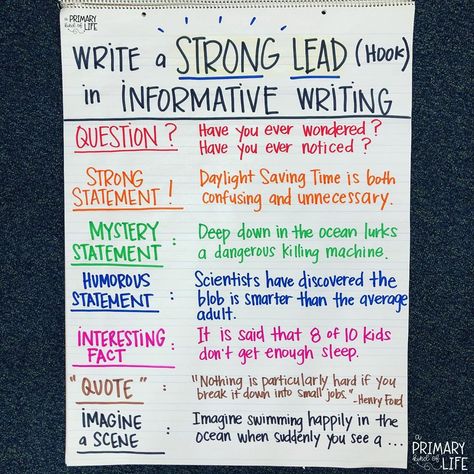 a PRIMARY kind of LIFE
WRITE a STRONG LEAD (HOOK)
in INFORMATIVE WRITING
QUESTION? Have you ever wondered?
Have you ever noticed?
STRONG Daylight Saving Time is both
STATEMENT! confusing and unnecessary.
MYSTERY Deep down in the ocean lurks
STATEMENT : a dangerous killing machine.
HUMOROUS Scientists have discovered the
STATEMENT : blob is smarter than the average
adult.
INTERESTING It is said that 8 of 10 kids
FACT : don't get enough sleep.
"QUOTE" : "Nothing is particularly hard if you
break it down into small jobs."
-Henry Ford
IMAGINE Imagine swimming happily in the
a SCENE : ocean when suddenly you see a ...
a PRIMARY kind of LIFE